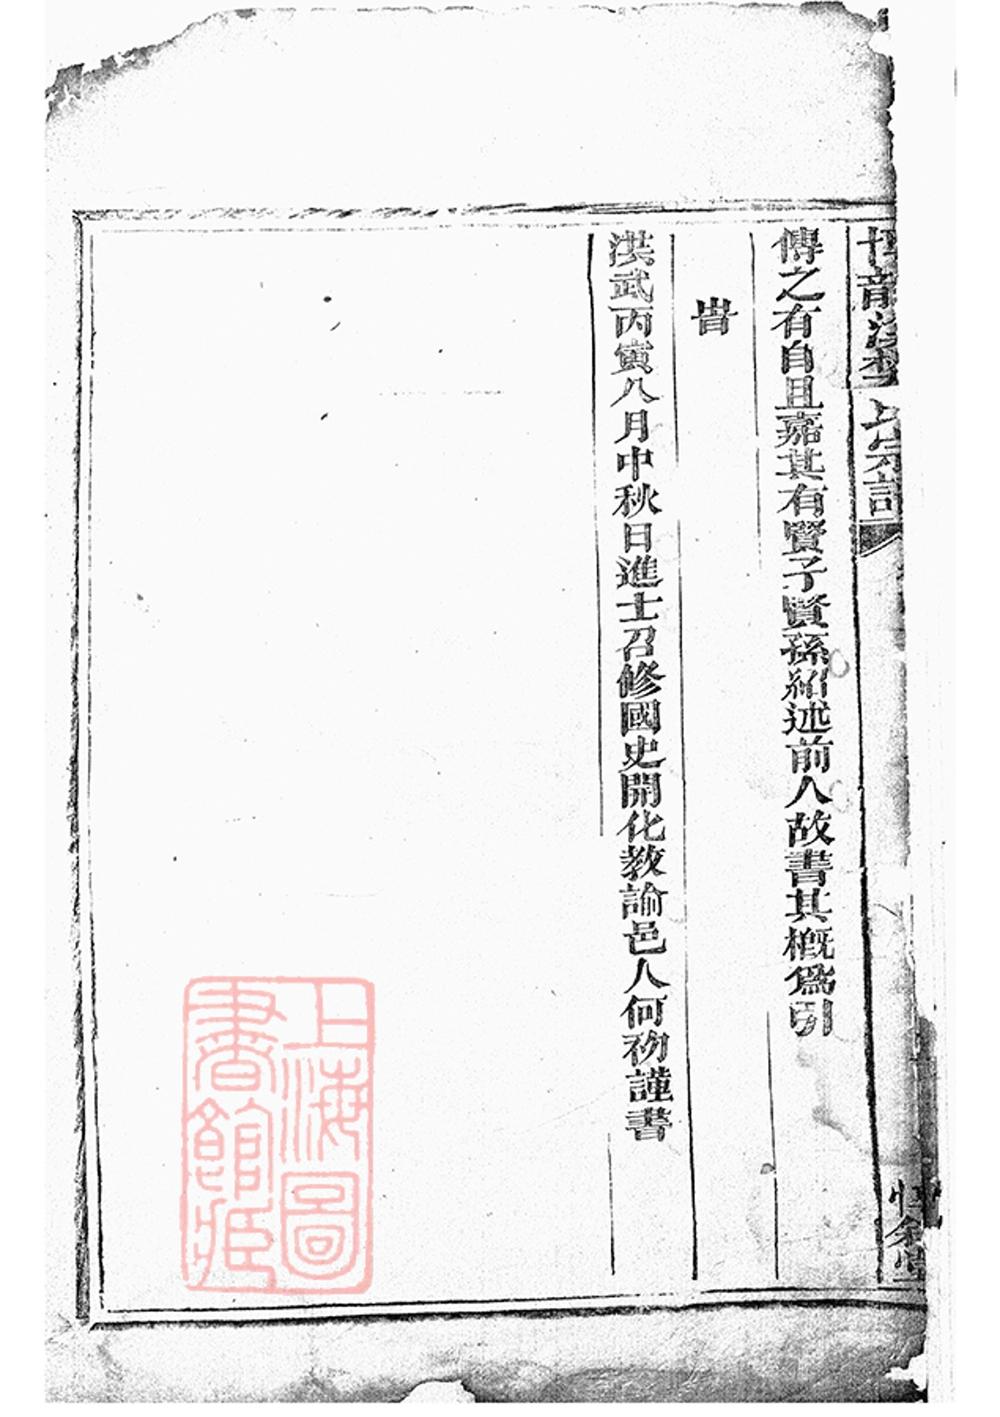 氏宗譜
傳之有自且嘉其有賢子賢孫紹述前人故書其概爲引
旹
洪武丙寅八月中秋日進士召修國史開化教諭邑人何初謹書
上海圖
書館藏